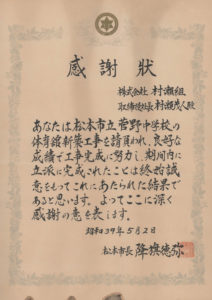 感謝狀
株式会社 村瀬組
取締役社長 村瀬茂人殿
あなたは松本市立菅野中学校の
体育館新築工事を請負われ、良好な
成績で工事完成に努力し、期間内に
立派に完成されたことは終始誠
意をもってこれにあたられた結果で
あると思います。よってここに深く
感謝の意を表します。
昭和39年5月2日
松本市長 降旗徳弥